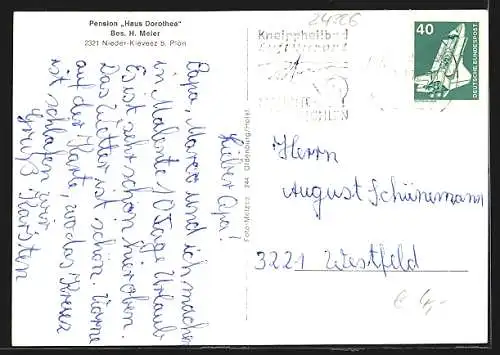 Pension „Haus Dorothea“
Bes. H. Meier
2321 Nieder-Kleveez b. Plön
Lieber Opa!
Papa, Marco und ich machen
in Malente 10 Tage Urlaub
Es ist sehr schön hier oben.
Das Wetter ist schön. Vorne
auf der Karte, wo das Kreuz
ist schlafen wir
Gruß Karsten
Foto-Metzee 244 Oldenburg/Holst
24326
Kneippheilbad
Luftkurort
40
DEUTSCHE BUNDESPOST
Herrn
August Schünemann
3221 Westfeld